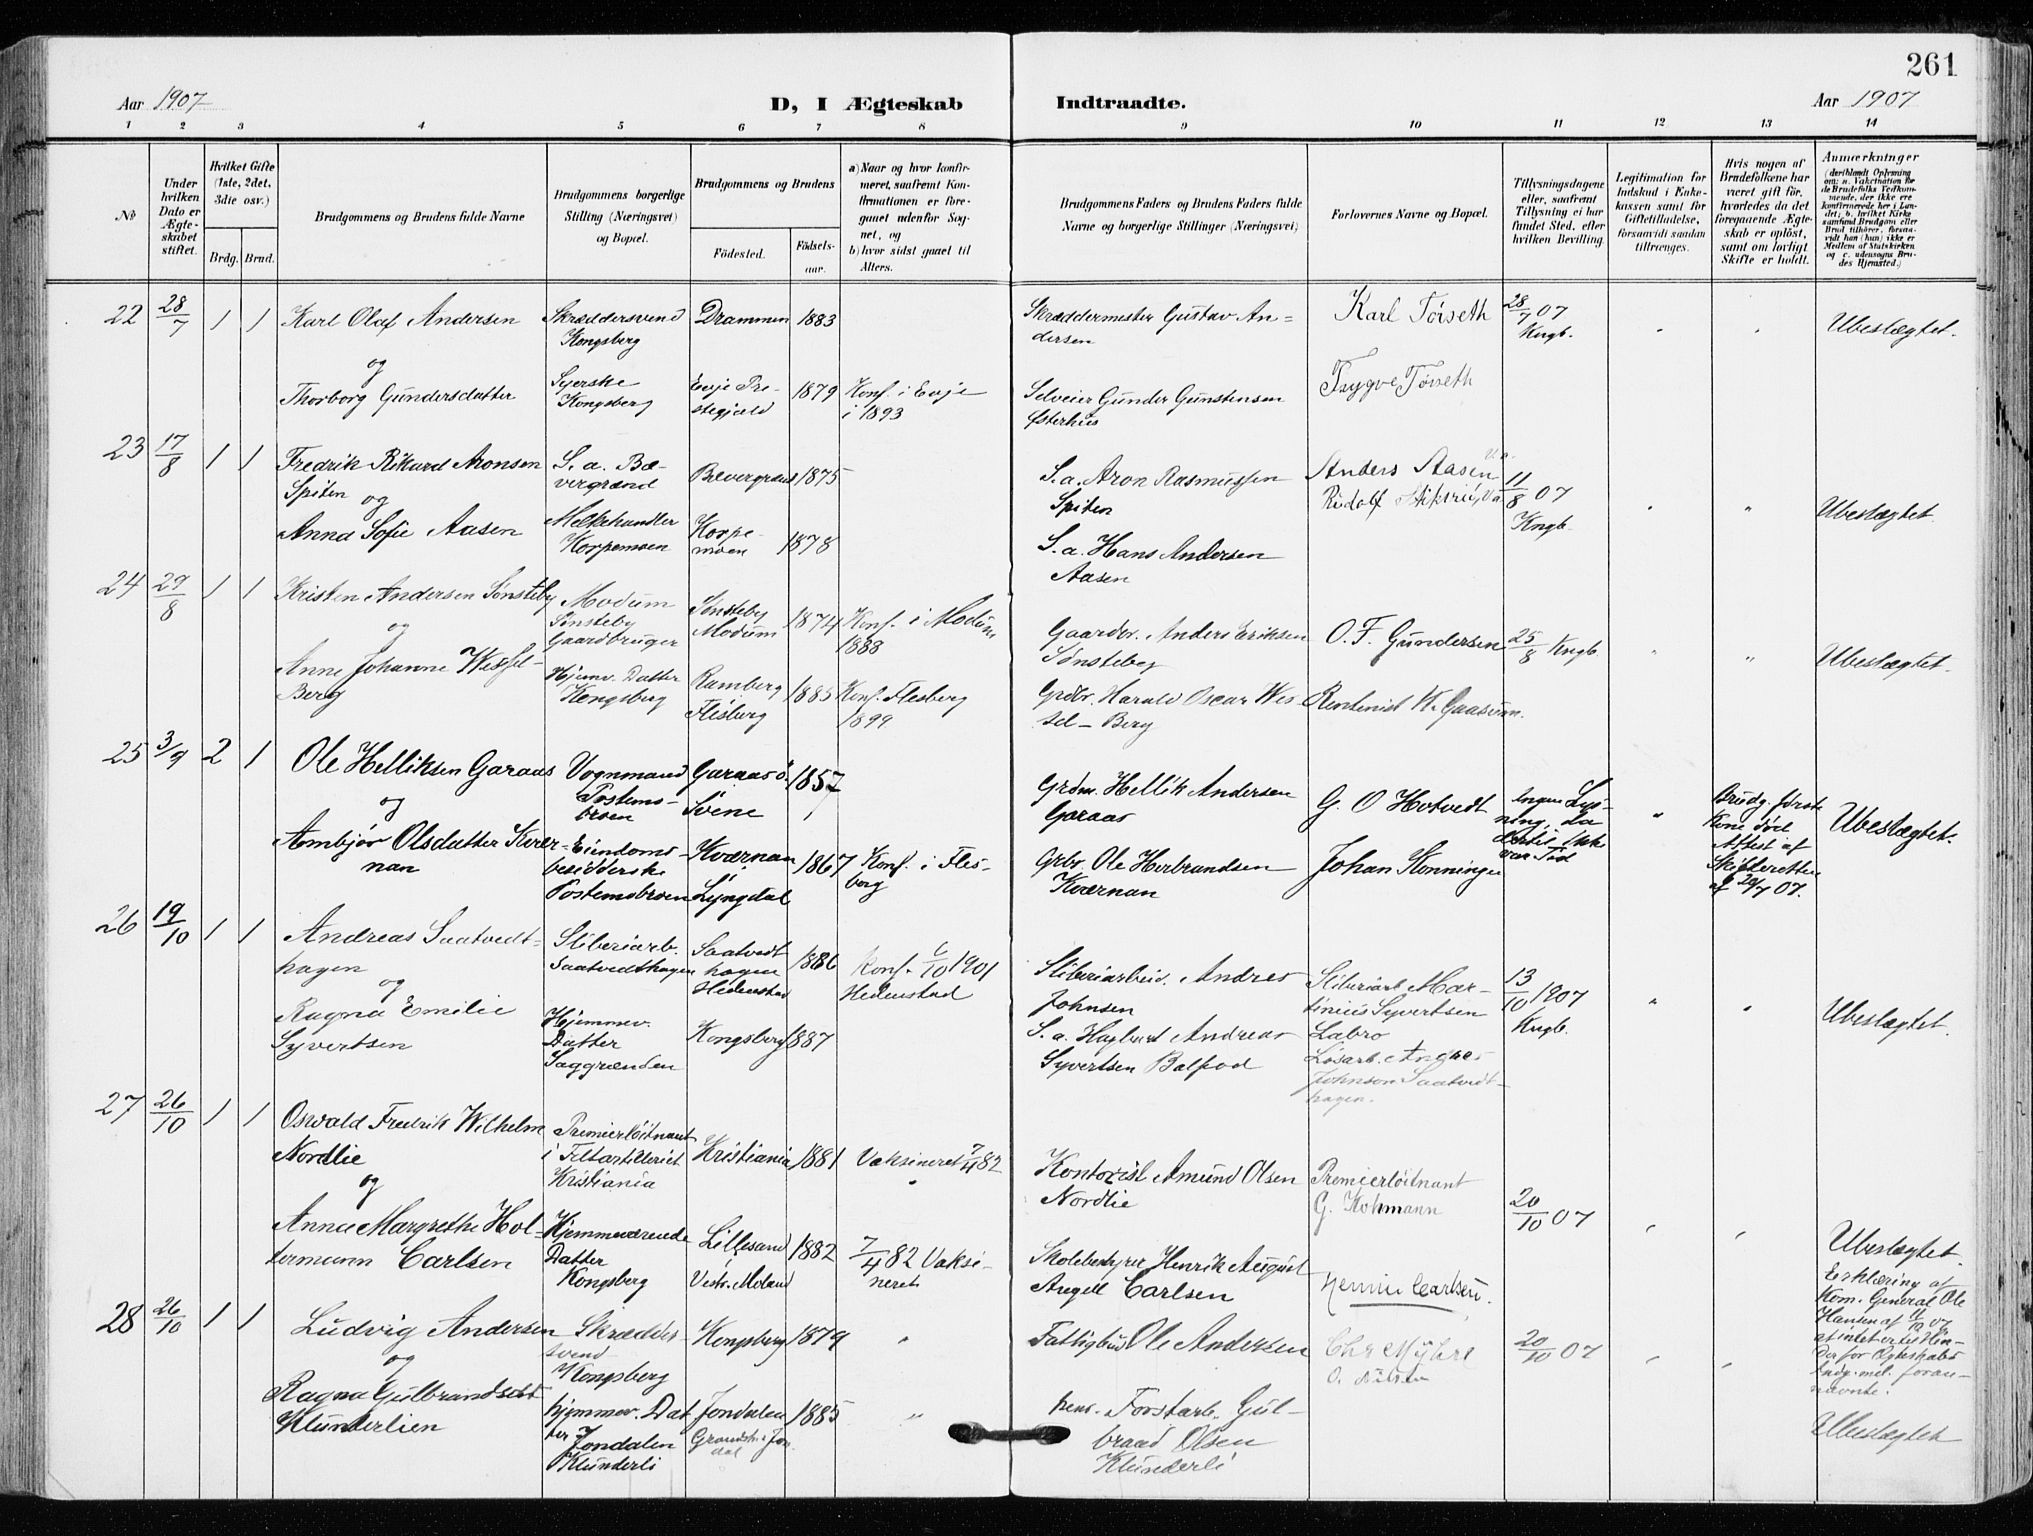 261
Aar 1907
D, I Ægteskab Indtraadte.
Aar 1907
1 2 3 4 5 6 7 8 9 10 11 12 13 14
№
Under hvilken Dato er Ægteskabet stiftet.
Hvilket Gifte (1ste, 2det, 3die osv.)
Brdg. Brud.
Brudgommens og Brudens fulde Navne
Brudgommens borgerlige Stilling (Næringsvei) og Bopæl.
Brudgommens og Brudens
Fødested.
Fødselsaar.
a) Naar og hvor konfirmeret, saafremt Konfirmationen er foregaaet udenfor Sognet, og
b) hvor sidst gaaet til Alters.
Brudgommens Faders og Brudens Faders fulde Navne og borgerlige Stillinger (Næringsvei)
Forlovernes Navne og Bopæl.
Tillysningsdagene eller, saafremt Tillysning ei har fundet Sted, efter hvilken Bevilling.
Legitimation for Indskud i Enkekassen samt for Giftetilladelse, forsaavidt saadan tiltrænges.
Hvis nogen af Brudefolkene har været gift før, hvorledes da det foregaaende Ægteskab er opløst, samt om lovligt Skifte er holdt.
Anmerkninger
(deriblandt Oplysning om: a. Vakcination for de Brudefolks Vedkommende, der ikke ere konfirmerede her i Landet; b. hvilket Kirkesamfund Brudgom eller Brud tilhører, forsaavidt han (hun) ikke er Medlem af Statskirken og c. udensogns Brudes Hjemsted.)
22 28/7 1 1 Karl Olaf Andersen
Skræddersvend Kongsberg
Drammen 1883
Skræddermester Gustav Andersen
Karl Tørseth
28/7 07 Kngb.
Ubeslægtet.
og
Thorborg Gundersdatter
Syerske Kongsberg
Evje Prestegjæld 1879
Konf. i Evje i 1893
Selveier Gunder Gunstensen Østerhus
Trygve Tørseth
23 17/8 1 1 Fredrik Rikard Aronsen Spiten
S. a. Bævergrænd
Bævergrænd 1875
S. a. Aron Rasmussen Spiten
Anders Aasen
Rudolf
11/8 07 Kngb.
Ubeslægtet.
og
Anna Sofie Aasen
Melkehandler Korpemoen
Korpemoen 1878
S. a. Hans Andersen Aasen
24 29/8 1 1 Kristen Andersen Sønsteby
Modum Sønsteby Gaardbruger
Sønsteby Modum 1874
Konf. i Modum 1888
Gaardbr. Anders Eriksen Sønsteby
O. F. Gundersen
25/8 Kngb.
Ubeslægtet.
og
Anne Johanne Wessel-Berg
Hjemv. Datter Kongsberg
Ramberg Flesberg 1885
Konf. Flesberg 1899
Grdbr. Harald Oscar Wessel-Berg
25 3/9 2 1 Ole Helliksen Garaas
Vognmand Postemobroen
Garaas ø. Svene 1857
Grdm. Hellik Andersen Garaas
G. O Hotvedt
Ingen Lysning, da dertil ikke var Tid
Brudg. første Kone død Attest af Skifteretten af 20/7 07.
Ubeslægtet.
og
Ambjør Olsdatter Kværnan
Eiendomsbesidderske Postemobroen
Kværnan Lyngdal 1867
Konf. i Flesberg
Grbr. Ole Herbrandsen Kværnan
Johan Konninger
26 19/10 1 1 Andreas Saatvedthagen
Sliberiarb. Saatvedthagen
Saatvedthagen Hedenstad 1886
Konf. 6/10 1901 Hedenstad
Sliberiarbeid. Andres Johnsen
Sliberiarb. Martinius Syvertsen Labro
13/10 1907 Kngb.
Ubeslægtet.
og
Ragna Emilie Syvertsen
Hjemmev. Datter Saggrenden
Kongsberg 1887
S. a. Hagbart Andreas Syvertsen Balpod
Løsarb. Andres Johnson Saatvedthagen.
27 26/10 1 1 Oswald Fredrik Wilhelm Nordlie
Premierløitnant i Feltartilleriet Kristiania
Kristiania 1881
Vaksineret 7/4 82
Kontorist Amund Olsen Nordlie
Premierløitnant G. Kohmann
20/10 07
Ubeslægtet.
og
Anna Margrethe Holtermann Carlsen
Hjemmeværende Datter Kongsberg
Lillesand Vestr. Moland 1882
7/4 82 Vaksineret
Skolebestyrer Henrik August Angell Carlsen
Carlsen.
Erklæring af Kom. General Ole Hansen af 07 at intet er til Hinder for Ægteskabs Indg. mel. forannævnte.
28 26/10 1 1 Ludvig Andersen
Skræddersvend Kongsberg
Kongsberg 1879
Fattigbud Ole Andersen
Chr Myhre
O. Nilsen
20/10 07
Ubeslægtet
og
Ragna Gulbrandsdtt Klunderlien
hjemmev. Datter Jondalen Klunderli
Jondalen 1885
pens. Forstarb. Gulbrand Olsen Klunderli